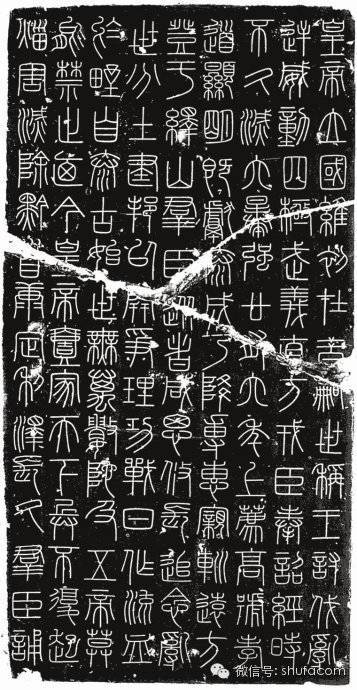 皇帝立國維初在昔嗣世稱王討伐亂
逆威動四極武義直方戎臣奉詔經時
不久滅六暴強廿有六年上薦高號孝
道顯明既獻泰成乃降專惠寴巡遠方
登于繹山羣臣從者咸思攸長追念亂
世分土建邦以開爭理功戰日作流血
於野自泰古始世無萬數陀及五帝莫
能禁止迺今皇帝壹家天下兵不復起
災害滅除黔首康定利澤長久羣臣誦
微信号: shufacom